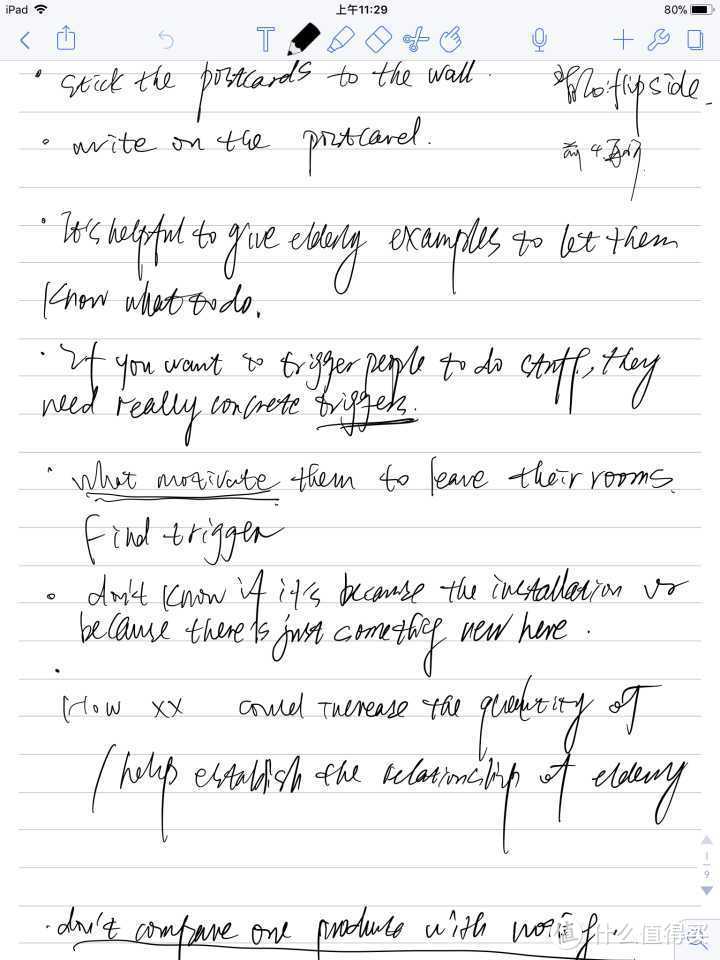 iPad 上午11:29 80%
• stick the postcards to the wall. flipside
• write on the postcard.
• It's helpful to give elderly examples to let them
know what to do.
• If you want to trigger people to do stuff, they
need really concrete triggers.
• what motivate them to leave their rooms.
Find trigger
• don't know if it's because the installation or
because there is just something new here.
• How xx could increase the quantity of
/ help establish the relationship of elderly
• don't compare one produce with
1
9
什么值得买